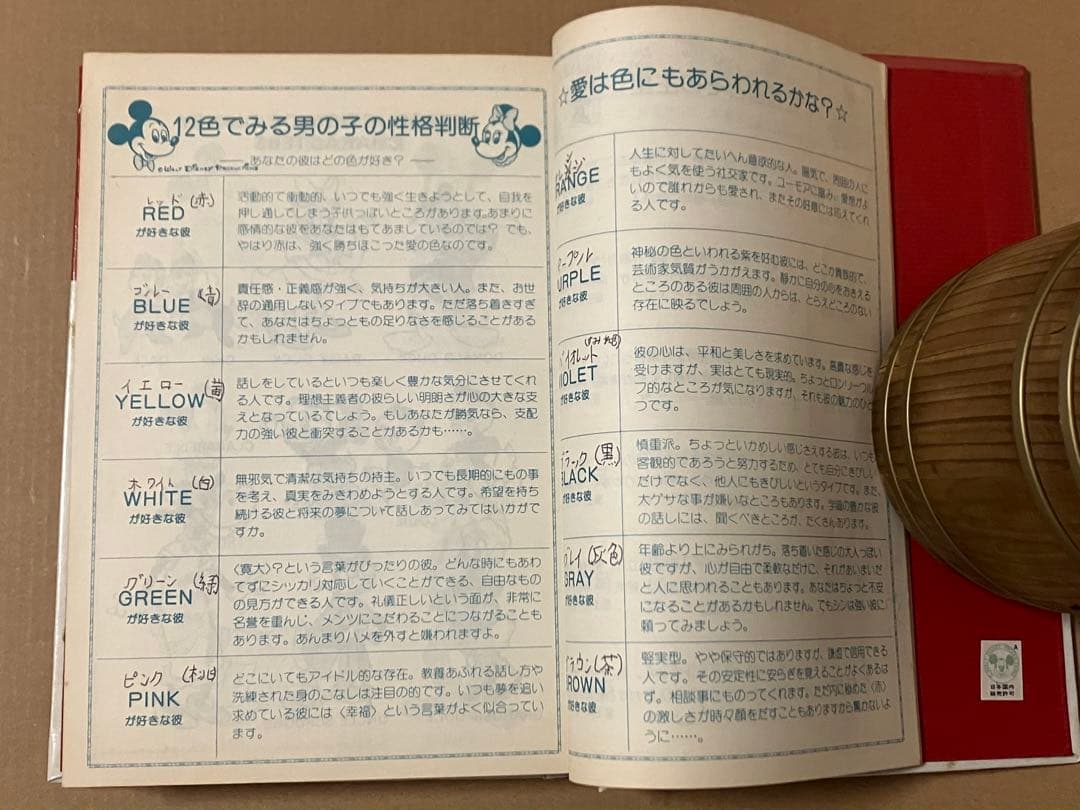 12色でみる男の子の性格判断
あなたの彼はどの色が好き?
© WALT DISNEY PRODUCTIONS
レッド (赤)
RED
が好きな彼
活動的で衝動的、いつでも強く生きようとして、自我を
押し通してしまう子供っぽいところがあります。あまりに
感情的な彼をあなたはもてあましているのでは? でも、
やはり赤は、強く勝ちほこった愛の色なのです。
ブルー (青)
BLUE
が好きな彼
責任感・正義感が強く、気持ちが大きい人。また、お世
辞の通用しないタイプでもあります。ただ落ち着きすぎ
て、あなたはちょっともの足りなさを感じることがある
かもしれません。
イエロー (黄)
YELLOW
が好きな彼
話しをしているといつも楽しく豊かな気分にさせてくれ
る人です。理想主義者の彼らしい明朗さが心の大きな支
えとなっているでしょう。もしあなたが勝気なら、支配
力の強い彼と衝突することがあるかも……。
ホワイト (白)
WHITE
が好きな彼
無邪気で清潔な気持ちの持主。いつでも長期的にもの事
を考え、真実をみきわめようとする人です。希望を持ち
続ける彼と将来の夢について話しあってみてはいかがで
すか。
グリーン (緑)
GREEN
が好きな彼
〈寛大〉?という言葉がぴったりの彼。どんな時にもあわ
てずにシッカリ対応していくことができる、自由なもの
の見方ができる人です。礼儀正しいという面が、非常に
名誉を重んじ、メンツにこだわることにつながることも
あります。あんまりハメを外すと嫌われますよ。
ピンク
PINK
が好きな彼
どこにいてもアイドル的な存在。教養あふれる話し方や
洗練された身のこなしは注目の的です。いつも夢を追い
求めている彼には〈幸福〉という言葉がよく似合ってい
ます。
☆愛は色にもあらわれるかな?☆
RANGE
が好きな彼
人生に対してたいへん意欲的な人。陽気で、周囲の人に
もよく気を使う社交家です。ユーモアに富み、愛想がよ
いので誰れからも愛され、またその好意には応えてくれ
る人です。
ープル
URPLE
が好きな彼
神秘の色といわれる紫を好む彼には、どこか貴族的で、
芸術家気質がうかがえます。静かに自分の心をおさえる
ところのある彼は周囲の人からは、とらえどころのない
存在に映るでしょう。
バイオレット
VIOLET
が好きな彼
彼の心は、平和と美しさを求めています。高貴な感じを
受けますが、実はとても現実的。ちょっとロンリーウル
フ的なところが気になりますが、それも彼の魅力のひと
つです。
ブラック (黒)
BLACK
が好きな彼
慎重派。ちょっといかめしい感じさえする彼は、いつも
客観的であろうと努力するため、とても自分にきびしい
だけでなく、他人にもきびしいというタイプです。また、
大ゲサな事が嫌いなところもあります。学識の豊かな彼
の話しには、聞くべきところが、たくさんあります。
グレイ (灰色)
GRAY
が好きな彼
年齢より上にみられがち。落ち着いた感じの大人っぽい
彼ですが、心が自由で柔軟なだけに、それがあいまいだ
と人に思われることもあります。あなたはちょっと不安
になることがあるかもしれません。でもシンは強い彼に
頼ってみましょう。
ブラウン (茶)
ROWN
が好きな彼
堅実型。やや保守的ではありますが、謙虚で信用できる
人です。その安定性に安らぎを覚えることがよくあるは
ず。相談事にものってくれます。ただ内に秘めた〈赤〉
の激しさが時々顔をだすこともありますから驚かないよ
うに……。
日本国内
販売許可